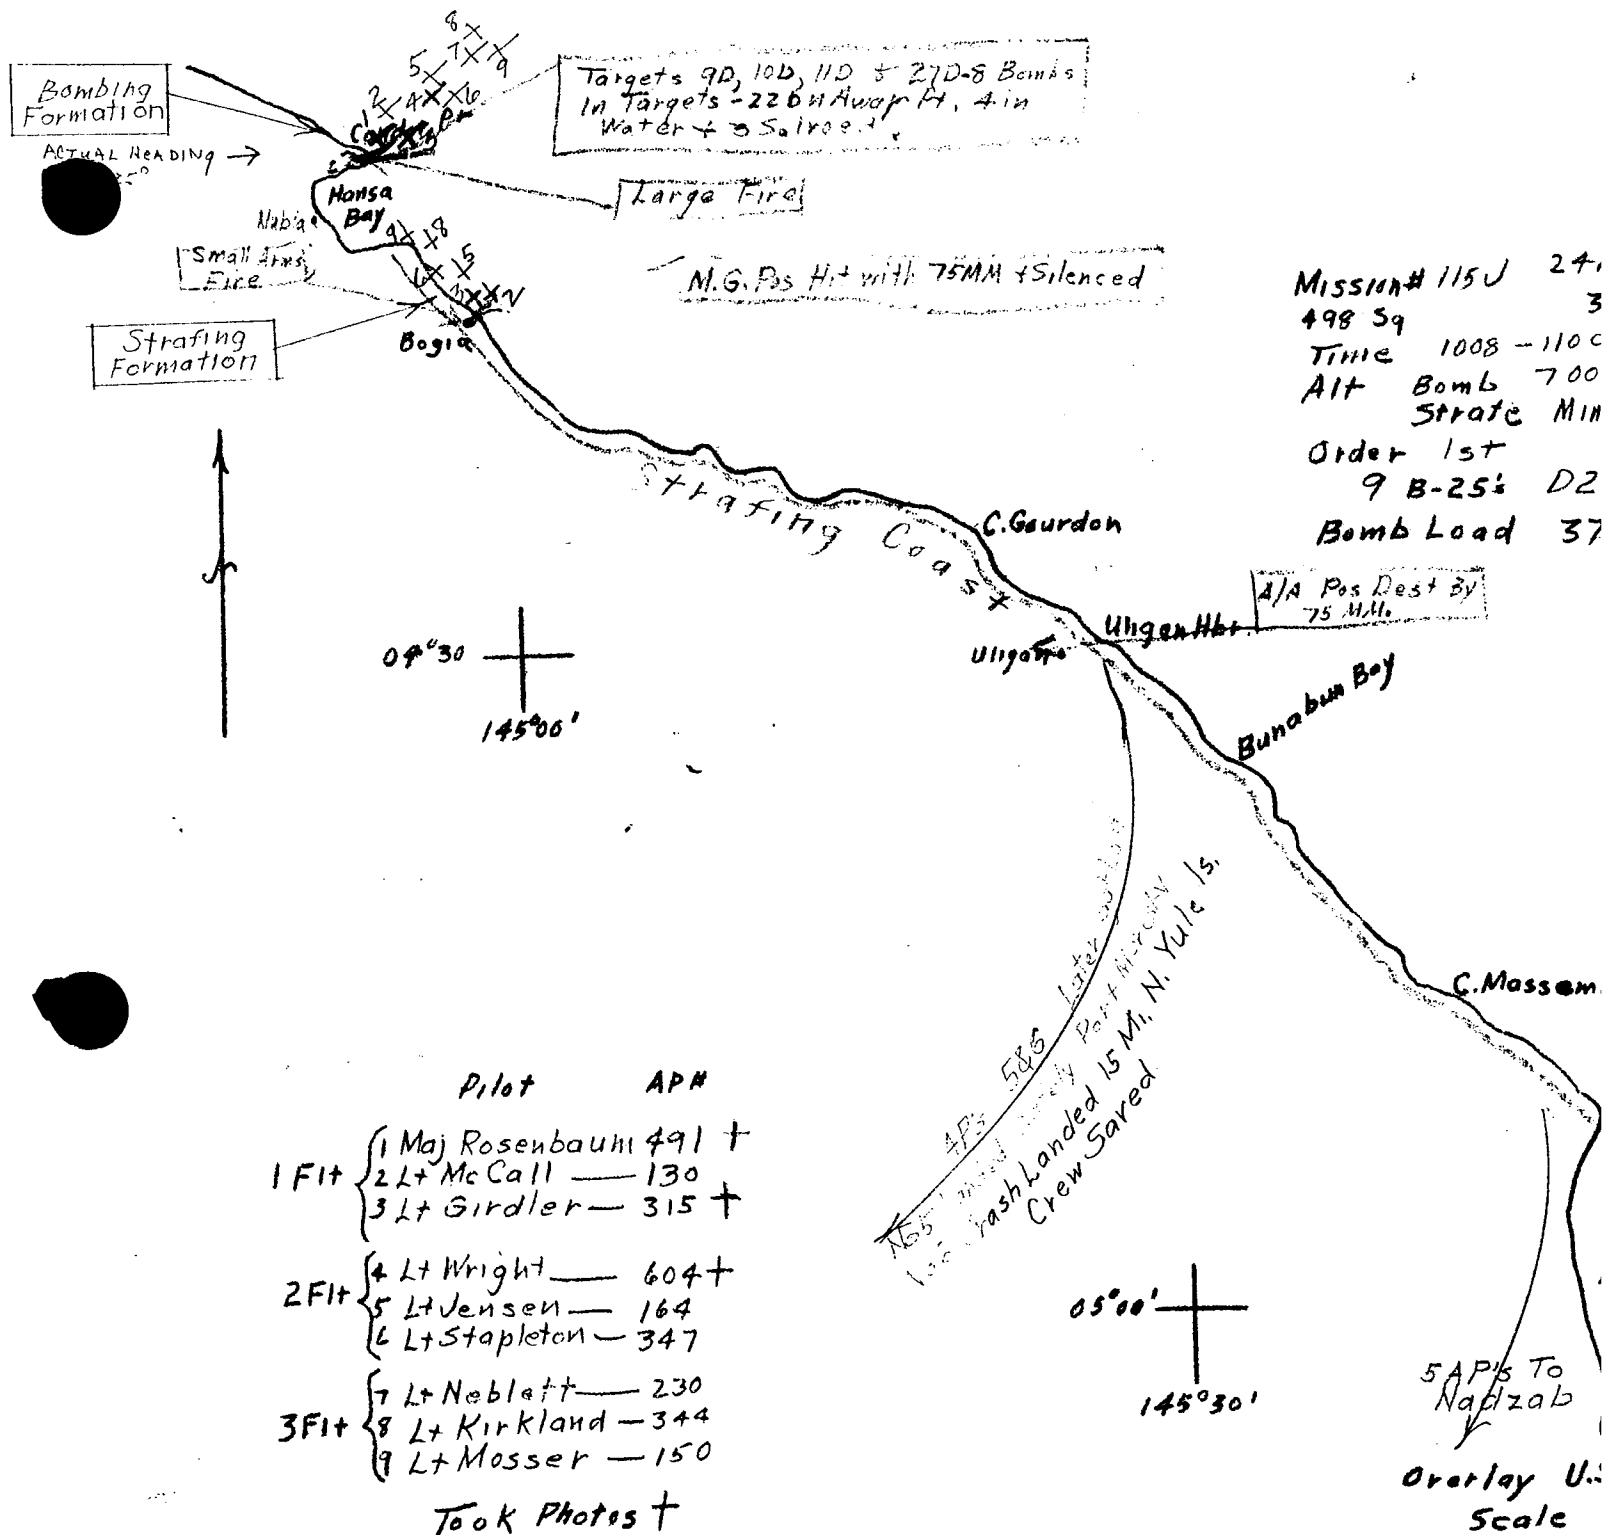 8
7
9
5
2
4
6
1
Bombing
Formation
ACTUAL HEADING →
Targets 9D, 10D, 11D & 27D-8 Bombs
In Targets - 22 on Awar Pt. 4 in
Water + 3
Large Fire
Hansa
Bay
Nubia
9
8
5
Small Arms
Fire
M.G. Pos Hit with 75MM + Silenced
Strafing
Formation
Bogia
Mission# 115J 24
498 Sq 3
Time 1008 - 110
Alt Bomb 700
Strafe Min
Order 1st
9 B-25's D2
Bomb Load 37
Strafing Coast
C. Gourdon
A/A Pos Dest By
75 MM.
Uligan Hbr.
Uligan
04°30
145°00'
Bunabun Bay
C. Massem
AP's 5&6 Later
Port Moresby
Crash Landed 15 Mi. N. Yule Is.
Crew Saved
Pilot AP#
1 Flt
1 Maj Rosenbaum 491 +
2 Lt McCall — 130
3 Lt Girdler — 315 +
2 Flt
4 Lt Wright — 604 +
5 Lt Jensen — 164
6 Lt Stapleton — 347
3 Flt
7 Lt Neblett — 230
8 Lt Kirkland — 344
9 Lt Mosser — 150
Took Photos +
05°00'
145°30'
5 AP's To
Nadzab
Overlay U.S
Scale